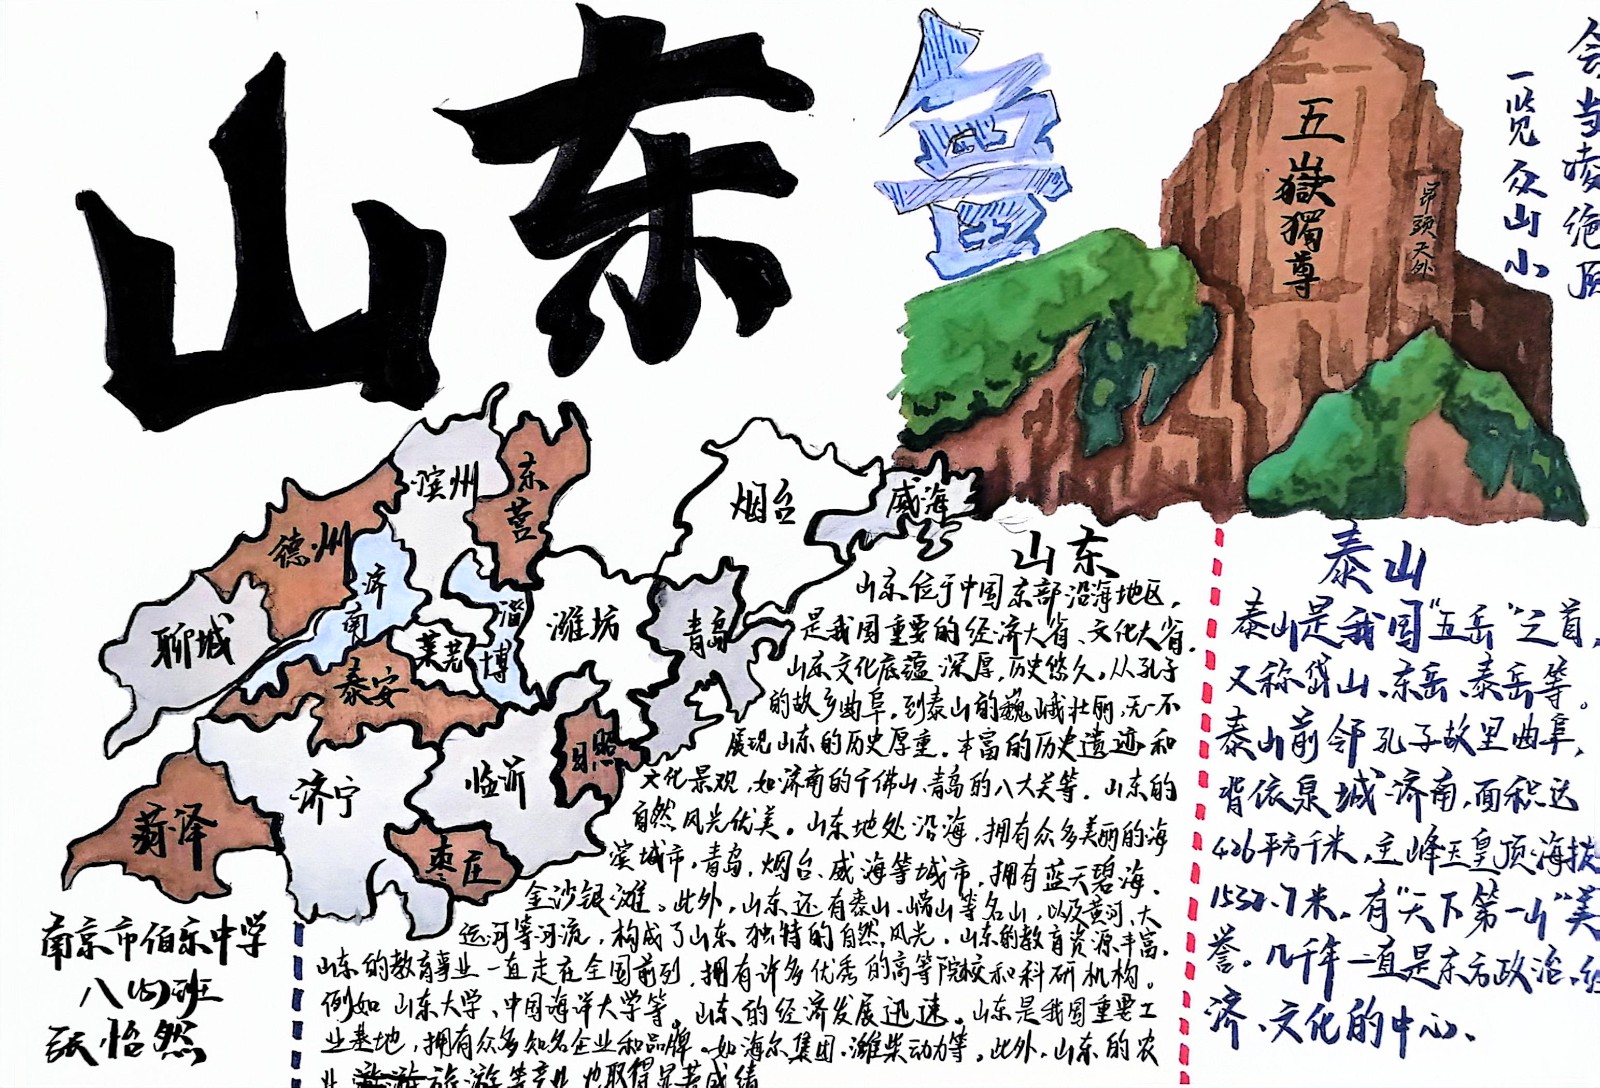 山东
鲁
五嶽獨尊
昂頭天外
会当凌绝顶
一览众山小
滨州
东营
德州
济南
聊城
泰安
莱芜
淄博
潍坊
烟台
威海
青岛
日照
临沂
济宁
菏泽
枣庄
山东
山东位于中国东部沿海地区，
是我国重要的经济大省、文化大省。
山东文化底蕴深厚，历史悠久，从孔子
的故乡曲阜，到泰山的巍峨壮丽，无一不
展现山东的历史厚重。丰富的历史遗迹和
文化景观，如济南的千佛山、青岛的八大关等。山东的
自然风光优美。山东地处沿海，拥有众多美丽的海
滨城市，青岛、烟台、威海等城市，拥有蓝天碧海、
金沙银滩。此外，山东还有泰山、崂山等名山，以及黄河、大
运河等河流，构成了山东独特的自然风光。山东的教育资源丰富，
山东的教育事业一直走在全国前列，拥有许多优秀的高等院校和科研机构。
例如山东大学、中国海洋大学等。山东的经济发展迅速。山东是我国重要工
业基地，拥有众多知名企业和品牌，如海尔集团、潍柴动力等。此外，山东的农
业旅游等产业也取得显著成绩
泰山
泰山是我国“五岳”之首，
又称岱山、东岳、泰岳等。
泰山前邻孔子故里曲阜，
背依泉城济南，面积达
426平方千米，主峰玉皇顶海拔
1532.7米。有“天下第一山”美
誉。几千年一直是东方政治、经
济、文化的中心、
南京市伯乐中学
八(5)班
怡然